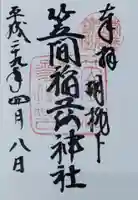 奉拝 胡桃下
笠間稲荷神社
平成二十九年四月八日